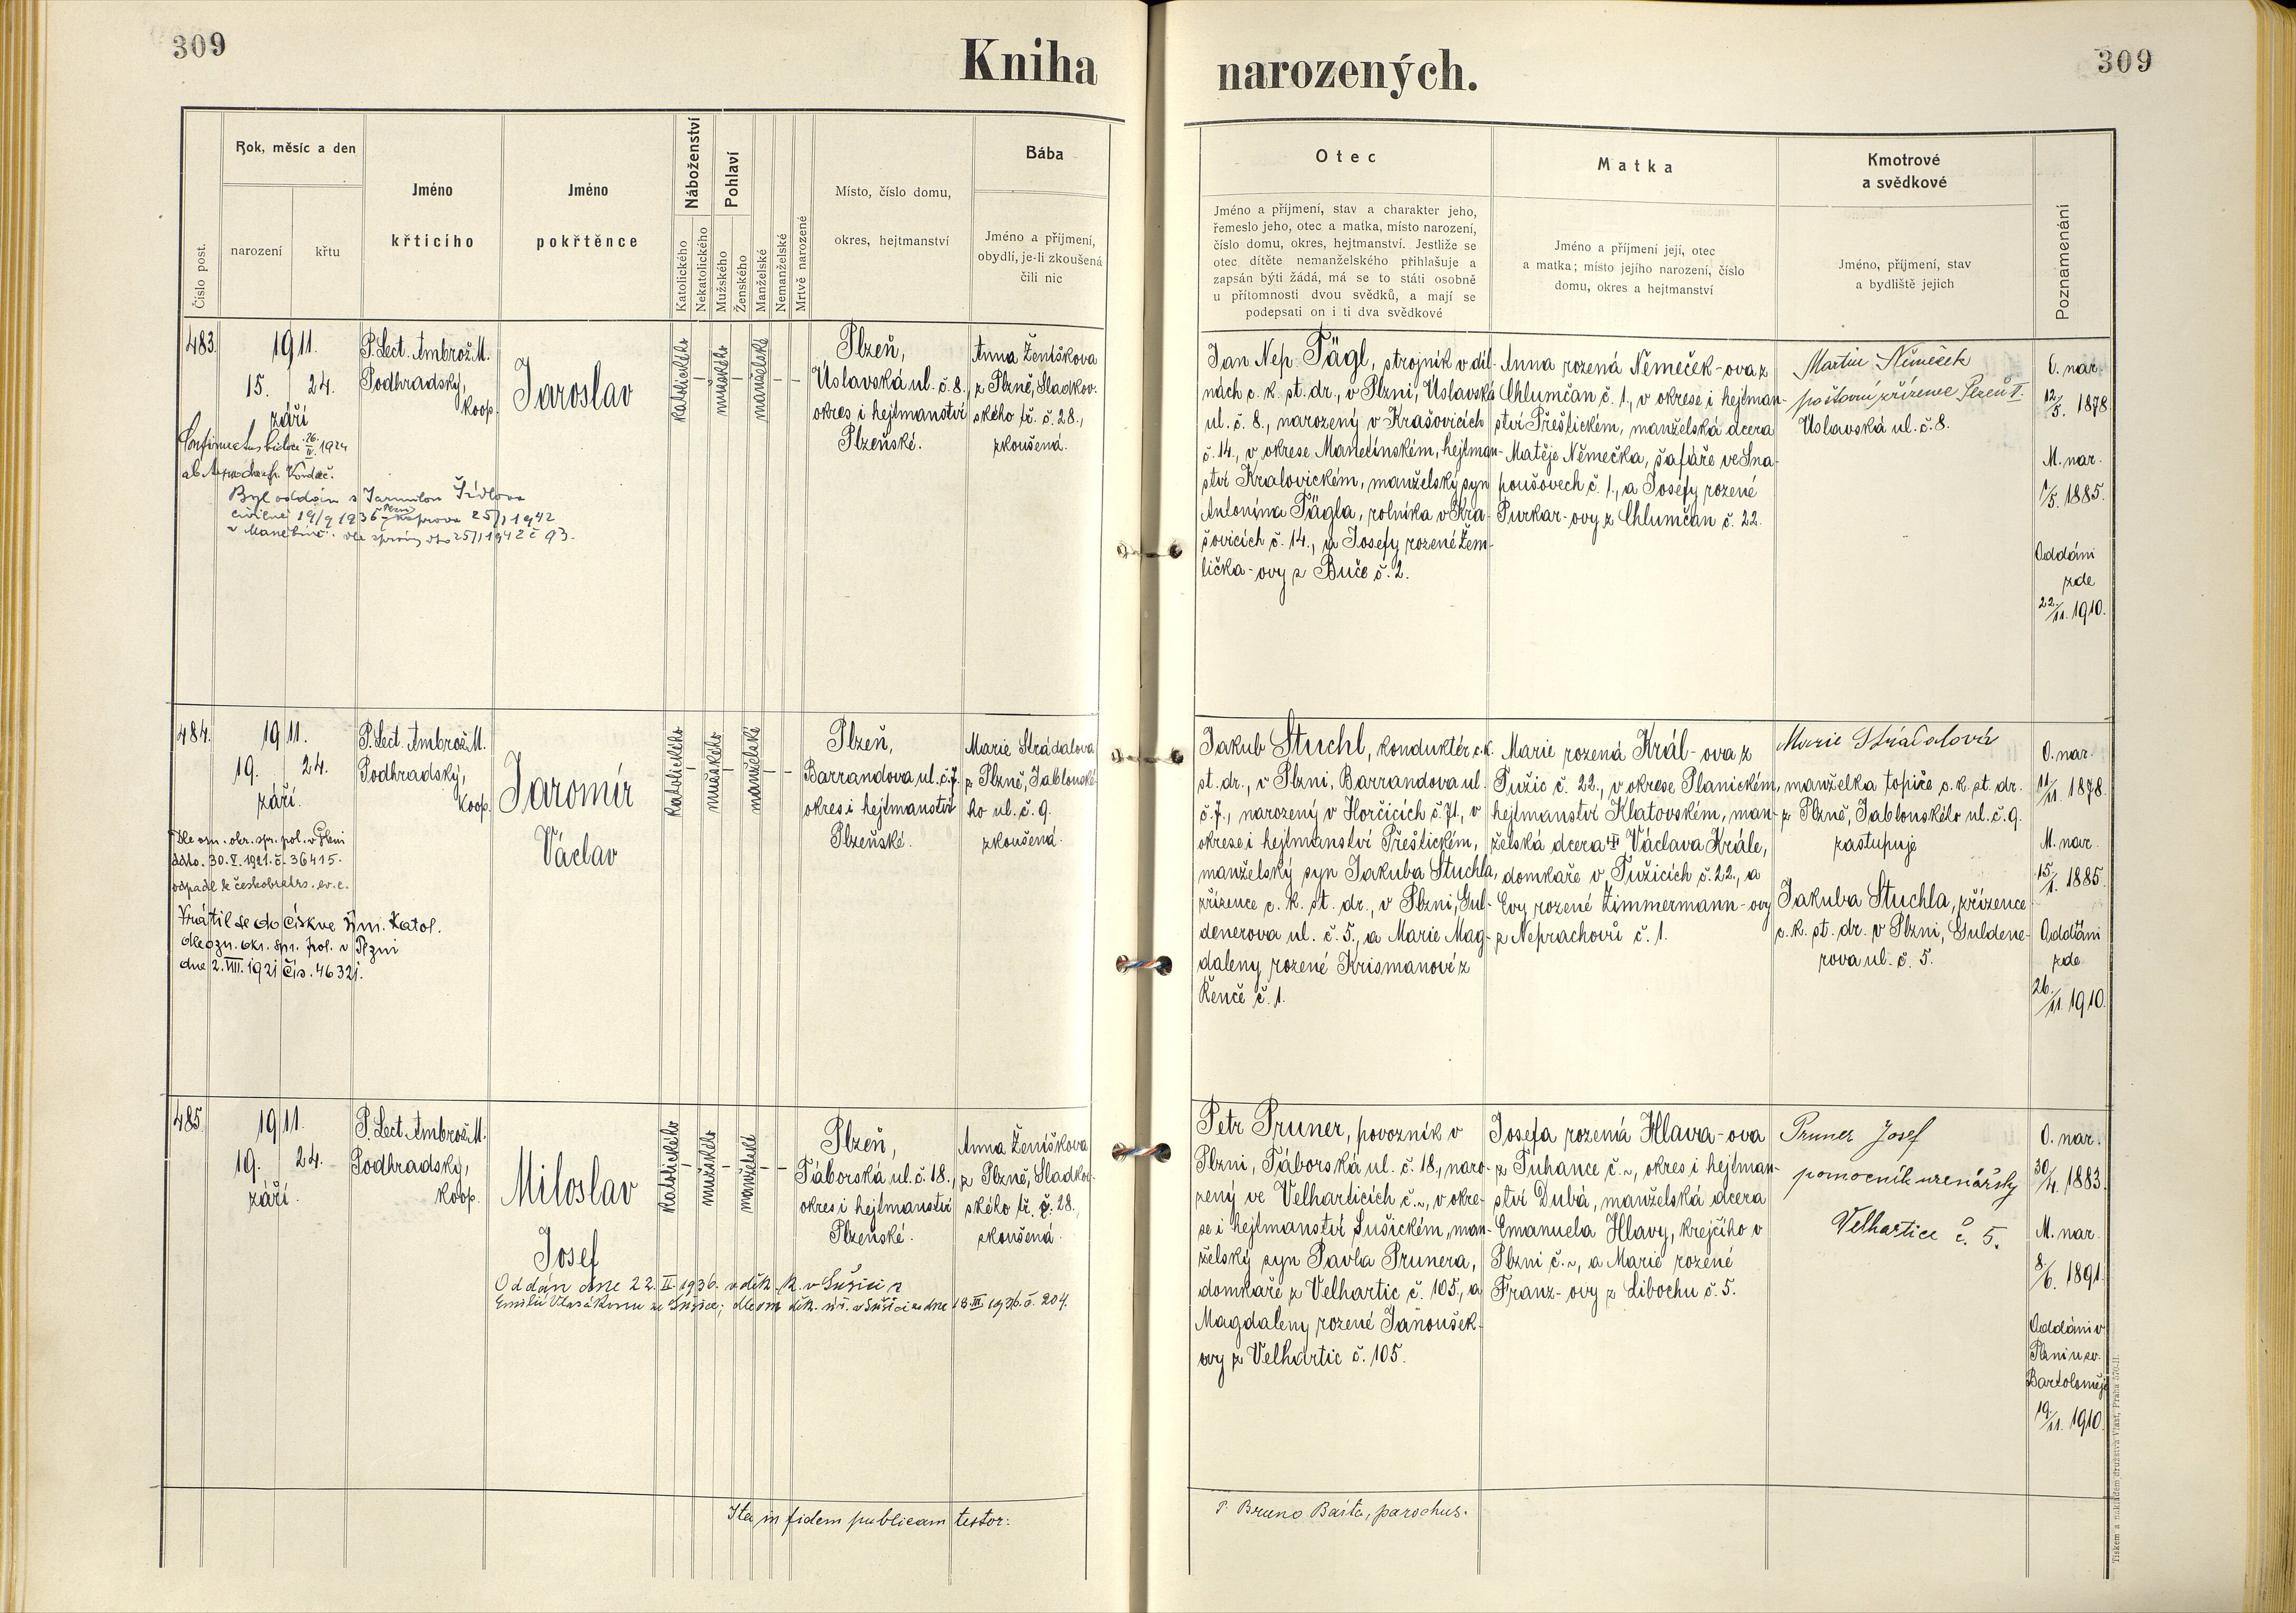 309
Kniha narozených.
309
Číslo post.
Rok, měsíc a den
narození
křtu
Jméno
křticího
Jméno
pokřtěnce
Náboženství
Katolického
Nekatolického
Pohlaví
Mužského
Ženského
Manželské
Nemanželské
Mrtvě narozené
Místo, číslo domu,
okres, hejtmanství
Bába
Jméno a příjmení,
obydlí, je-li zkoušená
čili nic
Otec
Jméno a příjmení, stav a charakter jeho,
řemeslo jeho, otec a matka, místo narození,
číslo domu, okres, hejtmanství. Jestliže se
otec dítěte nemanželského přihlašuje a
zapsán býti žádá, má se to státi osobně
u přítomnosti dvou svědků, a mají se
podepsati on i ti dva svědkové
Matka
Jméno a příjmení její, otec
a matka; místo jejího narození, číslo
domu, okres a hejtmanství
Kmotrové
a svědkové
Jméno, příjmení, stav
a bydliště jejich
Poznamenání
483.
1911.
15. 24.
září
P. Lect. Ambrož M.
Podhradský,
koop.
Jaroslav
katolického
–
mužského
–
manželské
– –
Plzeň,
Úslavská ul. č. 8.,
okres i hejtmanství
Plzeňské.
Anna Ženíškova
z Plzně, Sladkov-
ského tř. č. 28.,
zkoušená.
1924
Byl oddán s Jarmilou Šídlovou
civilně 19/9 1936 25/1 1942
v Manětíně. dle 25/1 1942 č 93.
Jan Nep. Fägl, strojník v díl-
nách c. k. st. dr., v Plzni, Úslavská
ul. č. 8., narozený v Krašovicích
č. 14., v okrese Manetínském, hejtman-
ství Kralovickém, manželský syn
Antonína Fägla, rolníka v Kra-
šovicích č. 14., a Josefy rozené Žem-
lička-ovy z Buče č. 2.
Anna rozená Němeček-ova z
Chlumčan č. 1., v okrese i hejtman-
ství Přeštickém, manželská dcera
Matěje Němečka, šafáře ve Sna-
poušovech č. 1., a Josefy rozené
Purkar-ovy z Chlumčan č. 22.
Martin Němeček
poštovní zřízenec Plzeň II.
Úslavská ul. č. 8.
O. nar.
12/5. 1878.
M. nar.
1/5. 1885.
Oddáni
zde
22./11. 1910.
484.
1911.
19. 24.
září.
P. Lect. Ambrož M.
Podhradský,
koop.
Jaromír
Václav
katolického
–
mužského
–
manželské
– –
Plzeň,
Barrandova ul. č. 7.
okres i hejtmanství
Plzeňské.
Marie Strádalova
z Plzně, Jablonské-
ho ul. č. 9.
zkoušená.
Dle ozn. okr. spr. pol. v Plzni
ddto. 30. V. 1921. č. 36415.
odpadl k českobratrs. ev. c.
Vrátil se do církve řím. katol.
dle ozn. okr. spr. pol. v Plzni
dne 2. VIII. 1921 čís. 46321.
Jakub Stuchl, konduktér c. k.
st. dr., v Plzni, Barrandova ul.
č. 7., narozený v Horčicích č. 71., v
okrese i hejtmanství Přeštickém,
manželský syn Jakuba Stuchla,
zřízence c. k. st. dr., v Plzni, Gul-
denerova ul. č. 5., a Marie Mag-
daleny rozené Krismanové z
Řenče č. 1.
Marie rozená Král-ova z
Tužic č. 22., v okrese Planickém,
hejtmanství Klatovském, man-
želská dcera Václava Krále,
domkaře v Tužicích č. 22., a
Evy rozené Zimmermann-ovy
z Neprachovů č. 1.
Marie Strádalová
manželka topiče c. k. st. dr.
z Plzně, Jablonského ul. č. 9.
zastupuje
Jakuba Stuchla, zřízence
c. k. st. dr. v Plzni, Guldene-
rova ul. č. 5.
O. nar.
11/11. 1878.
M. nar.
15./1. 1885.
Oddáni
zde
26./11. 1910.
485.
1911.
19. 24.
září.
P. Lect. Ambrož M.
Podhradský,
koop.
Miloslav
Josef
katolického
–
mužského
–
manželské
– –
Plzeň,
Táborská ul. č. 18.,
okres i hejtmanství
Plzeňské.
Anna Ženíškova
z Plzně, Sladkov-
ského tř. č. 28.,
zkoušená.
Oddán dne 22. II. 1936. v děk. k. v Sušici s
Emilií ze Sušice; dle ozn. děk. úř. v Sušici ze dne 13. III. 1936. č. 204.
Petr Pruner, povozník v
Plzni, Táborská ul. č. 18., naro-
zený ve Velharticích č. ~, v okre-
se i hejtmanství Sušickém, man-
želský syn Pavla Prunera,
domkaře z Velhartic č. 105., a
Magdaleny rozené Janoušek-
ovy z Velhartic č. 105.
Josefa rozená Hlava-ova
z Tuhance č. ~, okres i hejtman-
ství Dubá, manželská dcera
Emanuela Hlavy, krejčího v
Plzni č. ~, a Marie rozené
Franz-ovy z Libochu č. 5.
Pruner Josef
pomocník uzenářský
Velhartice č. 5.
O. nar.
30/4. 1883.
M. nar.
8./6. 1891.
Oddáni v
Plzni u sv.
Bartoloměje
19./11. 1910.
Ita in fidem publicam testor:
P. Bruno Bařta, parochus.
Tiskem a nákladem družstva Vlast, Praha 570-II.